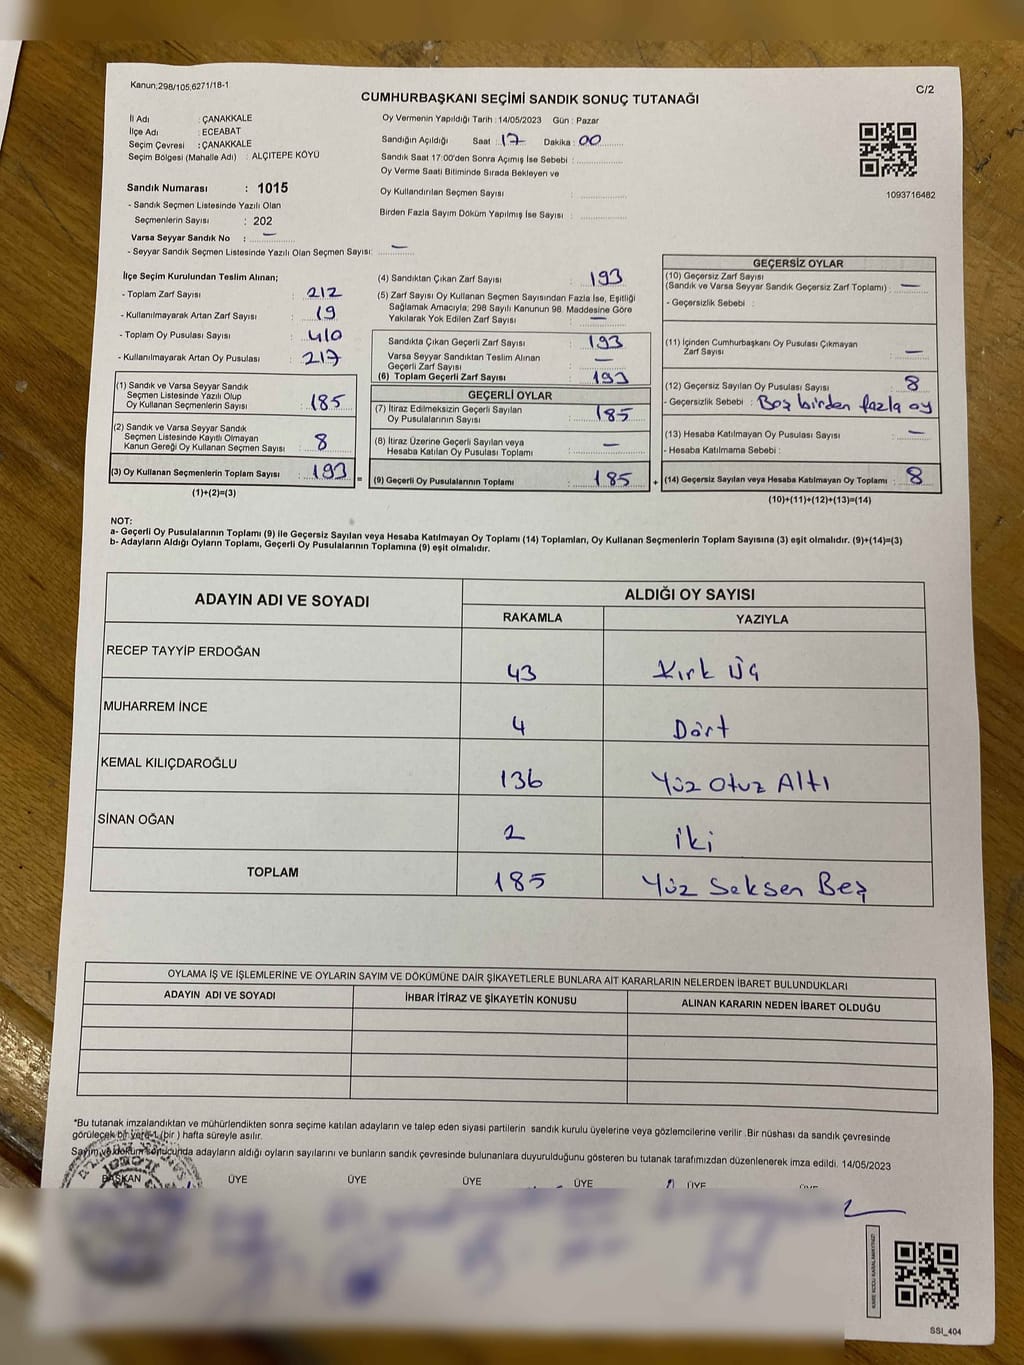 Kanun;298/105,6271/18-1
C/2
CUMHURBAŞKANI SEÇİMİ SANDIK SONUÇ TUTANAĞI
İl Adı : ÇANAKKALE
İlçe Adı : ECEABAT
Seçim Çevresi : ÇANAKKALE
Seçim Bölgesi (Mahalle Adı) : ALÇITEPE KÖYÜ
Oy Vermenin Yapıldığı Tarih : 14/05/2023 Gün : Pazar
Sandığın Açıldığı Saat : 17 Dakika : 00
Sandık Saat 17:00'den Sonra Açımış İse Sebebi :
Oy Verme Saati Bitiminde Sırada Bekleyen ve
Oy Kullandırılan Seçmen Sayısı :
Birden Fazla Sayım Döküm Yapılmış İse Sayısı :
1093716462
Sandık Numarası : 1015
- Sandık Seçmen Listesinde Yazılı Olan
Seçmenlerin Sayısı : 202
Varsa Seyyar Sandık No : —
- Seyyar Sandık Seçmen Listesinde Yazılı Olan Seçmen Sayısı: —
İlçe Seçim Kurulundan Teslim Alınan;
- Toplam Zarf Sayısı : 212
- Kullanılmayarak Artan Zarf Sayısı : 19
- Toplam Oy Pusulası Sayısı : 410
- Kullanılmayarak Artan Oy Pusulası : 217
(1) Sandık ve Varsa Seyyar Sandık
Seçmen Listesinde Yazılı Olup
Oy Kullanan Seçmenlerin Sayısı : 185
(2) Sandık ve Varsa Seyyar Sandık
Seçmen Listesinde Kayıtlı Olmayan
Kanun Gereği Oy Kullanan Seçmen Sayısı : 8
(3) Oy Kullanan Seçmenlerin Toplam Sayısı : 193
(1)+(2)=(3)
(4) Sandıktan Çıkan Zarf Sayısı : 193
(5) Zarf Sayısı Oy Kullanan Seçmen Sayısından Fazla İse, Eşitliği
Sağlamak Amacıyla; 298 Sayılı Kanunun 98. Maddesine Göre
Yakılarak Yok Edilen Zarf Sayısı : —
Sandıkta Çıkan Geçerli Zarf Sayısı : 193
Varsa Seyyar Sandıktan Teslim Alınan
Geçerli Zarf Sayısı : —
(6) Toplam Geçerli Zarf Sayısı : 193
GEÇERLİ OYLAR
(7) İtiraz Edilmeksizin Geçerli Sayılan
Oy Pusulalarının Sayısı : 185
(8) İtiraz Üzerine Geçerli Sayılan veya
Hesaba Katılan Oy Pusulası Toplamı : —
(9) Geçerli Oy Pusulalarının Toplamı : 185
GEÇERSİZ OYLAR
(10) Geçersiz Zarf Sayısı
(Sandık ve Varsa Seyyar Sandık Geçersiz Zarf Toplamı) : —
- Geçersizlik Sebebi :
(11) İçinden Cumhurbaşkanı Oy Pusulası Çıkmayan
Zarf Sayısı : —
(12) Geçersiz Sayılan Oy Pusulası Sayısı : 8
- Geçersizlik Sebebi : Boş birden fazla oy
(13) Hesaba Katılmayan Oy Pusulası Sayısı : —
- Hesaba Katılmama Sebebi :
(14) Geçersiz Sayılan veya Hesaba Katılmayan Oy Toplamı : 8
(10)+(11)+(12)+(13)=(14)
NOT:
a- Geçerli Oy Pusulalarının Toplamı (9) ile Geçersiz Sayılan veya Hesaba Katılmayan Oy Toplamı (14) Toplamları, Oy Kullanan Seçmenlerin Toplam Sayısına (3) eşit olmalıdır. (9)+(14)=(3)
b- Adayların Aldığı Oyların Toplamı, Geçerli Oy Pusulalarının Toplamına (9) eşit olmalıdır.
ADAYIN ADI VE SOYADI ALDIĞI OY SAYISI
RAKAMLA YAZIYLA
RECEP TAYYİP ERDOĞAN 43 Kırk Üç
MUHARREM İNCE 4 Dört
KEMAL KILIÇDAROĞLU 136 Yüz Otuz Altı
SİNAN OĞAN 2 iki
TOPLAM 185 Yüz Seksen Beş
OYLAMA İŞ VE İŞLEMLERİNE VE OYLARIN SAYIM VE DÖKÜMÜNE DAİR ŞİKAYETLERLE BUNLARA AİT KARARLARIN NELERDEN İBARET BULUNDUKLARI
ADAYIN ADI VE SOYADI İHBAR İTİRAZ VE ŞİKAYETİN KONUSU ALINAN KARARIN NEDEN İBARET OLDUĞU
*Bu tutanak imzalandıktan ve mühürlendikten sonra seçime katılan adayların ve talep eden siyasi partilerin sandık kurulu üyelerine veya gözlemcilerine verilir .Bir nüshası da sandık çevresinde
görülecek bir yere 1 (bir ) hafta süreyle asılır.
Sayım ve döküm sonucunda adayların aldığı oyların sayılarını ve bunların sandık çevresinde bulunanlara duyurulduğunu gösteren bu tutanak tarafımızdan düzenlenerek imza edildi. 14/05/2023
BAŞKAN ÜYE ÜYE ÜYE ÜYE ÜYE
SSI_404